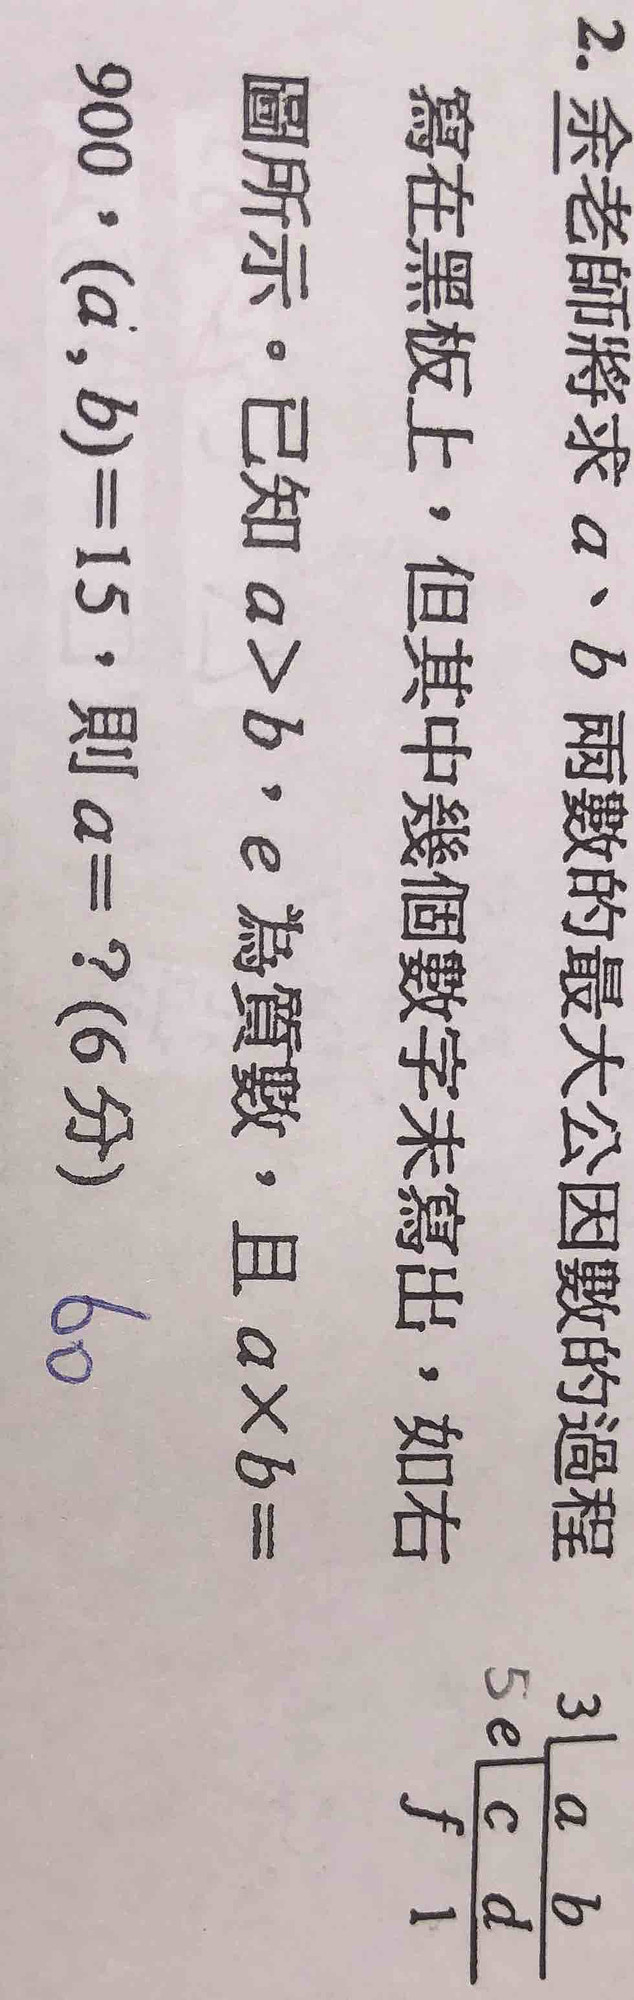 2. 余老師將求 a、b 兩數的最大公因數的過程
寫在黑板上，但其中幾個數字未寫出，如右
圖所示。已知 a>b，e 為質數，且 a×b=
900，(a, b)=15，則 a=？(6 分) 60
3 a b
5 e c d
f 1